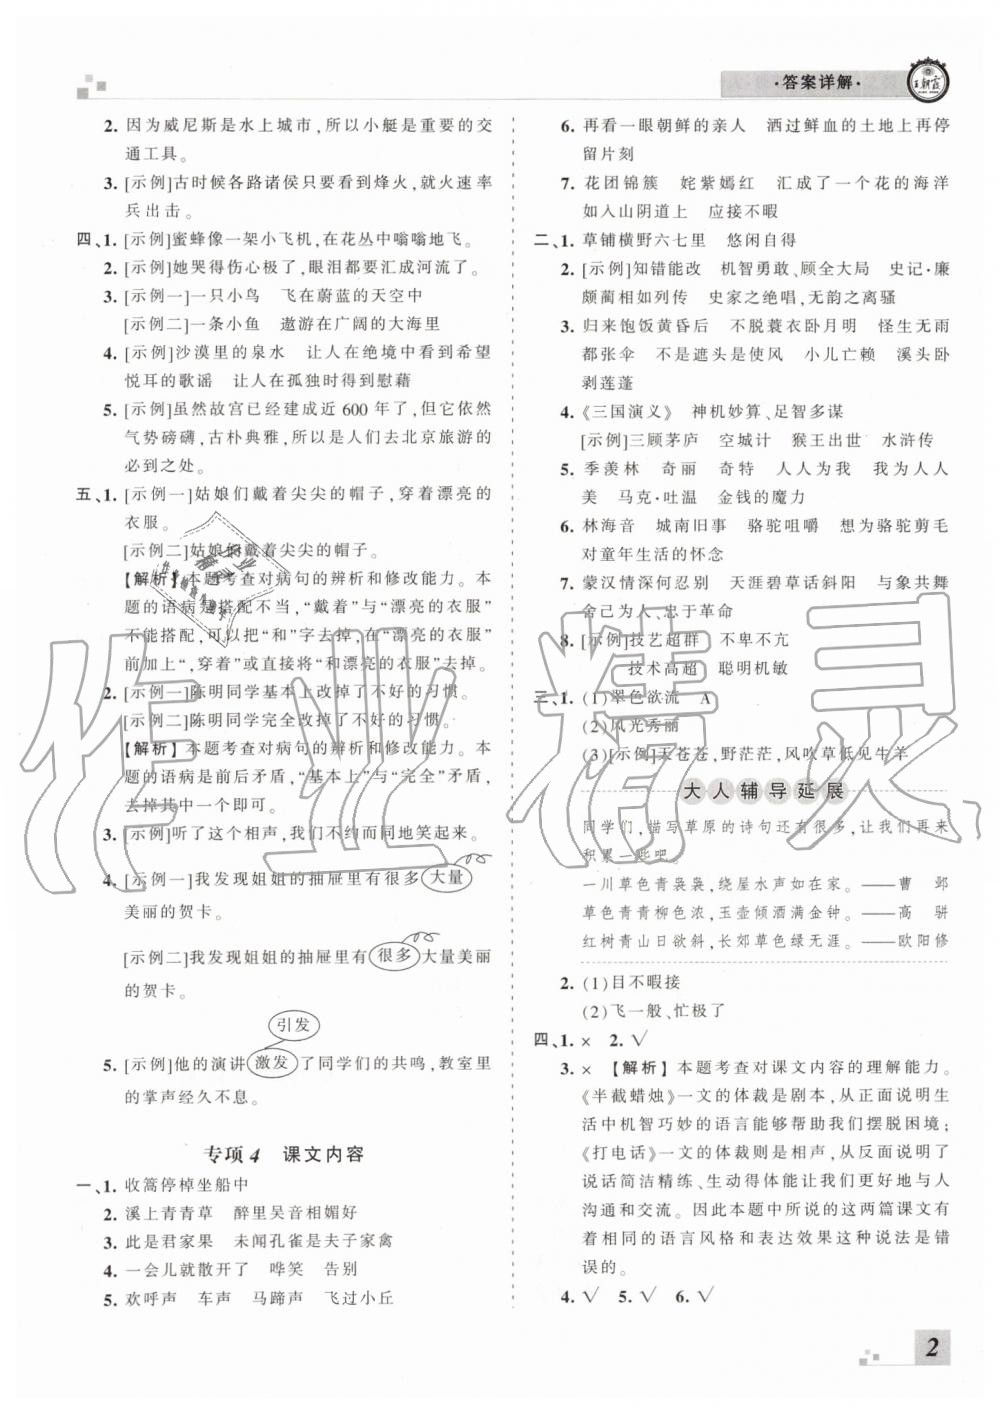 ·答案详解·
王朝霞
2. 因为威尼斯是水上城市,所以小艇是重要的交
通工具。
3. [示例]古时候各路诸侯只要看到烽火,就火速率
兵出击。
四、1. [示例]蜜蜂像一架小飞机,在花丛中嗡嗡地飞。
2. [示例]她哭得伤心极了,眼泪都要汇成河流了。
3. [示例一]一只小鸟　飞在蔚蓝的天空中
[示例二]一条小鱼　遨游在广阔的大海里
4. [示例]沙漠里的泉水　让人在绝境中看到希望
悦耳的歌谣　让人在孤独时得到慰藉
5. [示例]虽然故宫已经建成近 600 年了,但它依然
气势磅礴,古朴典雅,所以是人们去北京旅游的
必到之处。
五、1. [示例一]姑娘们戴着尖尖的帽子,穿着漂亮的
衣服。
[示例二]姑娘们戴着尖尖的帽子。
【解析】本题考查对病句的辨析和修改能力。本
题的语病是搭配不当,“戴着”与“漂亮的衣服”
不能搭配,可以把“和”字去掉,在“漂亮的衣服”
前加上“,穿着”或直接将“和漂亮的衣服”去掉。
2. [示例一]陈明同学基本上改掉了不好的习惯。
[示例二]陈明同学完全改掉了不好的习惯。
【解析】本题考查对病句的辨析和修改能力。本
题的语病是前后矛盾,“基本上”与“完全”矛盾,
去掉其中一个即可。
3. [示例]听了这个相声,我们不约而同地笑起来。
4. [示例一]我发现姐姐的抽屉里有很多大量
美丽的贺卡。
[示例二]我发现姐姐的抽屉里有很多大量美丽
的贺卡。
引发
5. [示例]他的演讲激发了同学们的共鸣,教室里
的掌声经久不息。
专项 4　课文内容
一、1. 收篙停棹坐船中
2. 溪上青青草　醉里吴音相媚好
3. 此是君家果　未闻孔雀是夫子家禽
4. 一会儿就散开了　哗笑　告别
5. 欢呼声　车声　马蹄声　飞过小丘
6. 再看一眼朝鲜的亲人　洒过鲜血的土地上再停
留片刻
7. 花团锦簇　姹紫嫣红　汇成了一个花的海洋
如入山阴道上　应接不暇
二、1. 草铺横野六七里　悠闲自得
2. [示例]知错能改　机智勇敢、顾全大局　史记·廉
颇蔺相如列传　史家之绝唱,无韵之离骚
3. 归来饱饭黄昏后　不脱蓑衣卧月明　怪生无雨
都张伞　不是遮头是使风　小儿亡赖　溪头卧
剥莲蓬
4. 《三国演义》　神机妙算、足智多谋
[示例]三顾茅庐　空城计　猴王出世　水浒传
5. 季羡林　奇丽　奇特　人人为我　我为人人
美　马克·吐温　金钱的魔力
6. 林海音　城南旧事　骆驼咀嚼　想为骆驼剪毛
对童年生活的怀念
7. 蒙汉情深何忍别　天涯碧草话斜阳　与象共舞
舍己为人、忠于革命
8. [示例]技艺超群　不卑不亢
技术高超　聪明机敏
三、1. (1)翠色欲流　A
(2)风光秀丽
(3)[示例]天苍苍,野茫茫,风吹草低见牛羊
大人辅导延展
同学们,描写草原的诗句还有很多,让我们再来
积累一些吧。
一川草色青袅袅,绕屋水声如在家。——曹　邺
草色青青柳色浓,玉壶倾酒满金钟。——高　骈
红树青山日欲斜,长郊草色绿无涯。——欧阳修
2. (1)目不暇接
(2)飞一般,忙极了
四、1. ×　2. √
3. ×　【解析】本题考查对课文内容的理解能力。
《半截蜡烛》一文的体裁是剧本,从正面说明生
活中机智巧妙的语言能够帮助我们摆脱困境;
《打电话》一文的体裁则是相声,从反面说明
说话简洁精练、生动得体能让我们更好地与人
沟通和交流。因此本题中所说的这两篇课文有
着相同的语言风格和表达效果这种说法是错
误的。
4. √　5. √　6. √
2
作业精灵